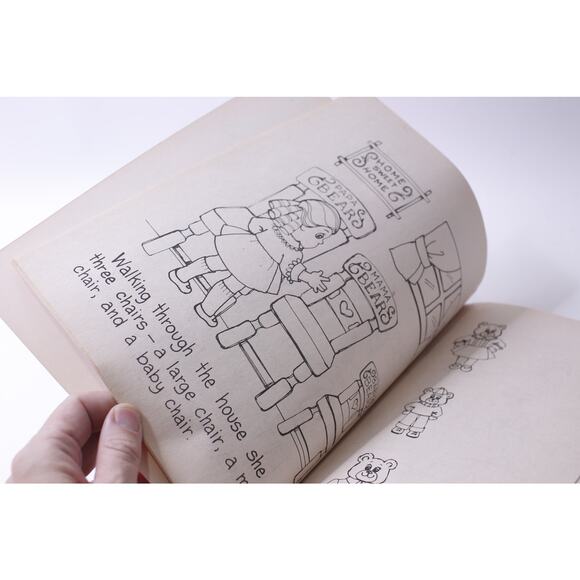 HOME
SWEET
HOME
PAPA
BEAR
MAMA
BEAR
BEAR
Walking through the house she
three chairs – a large chair, a m
chair, and a baby chair.